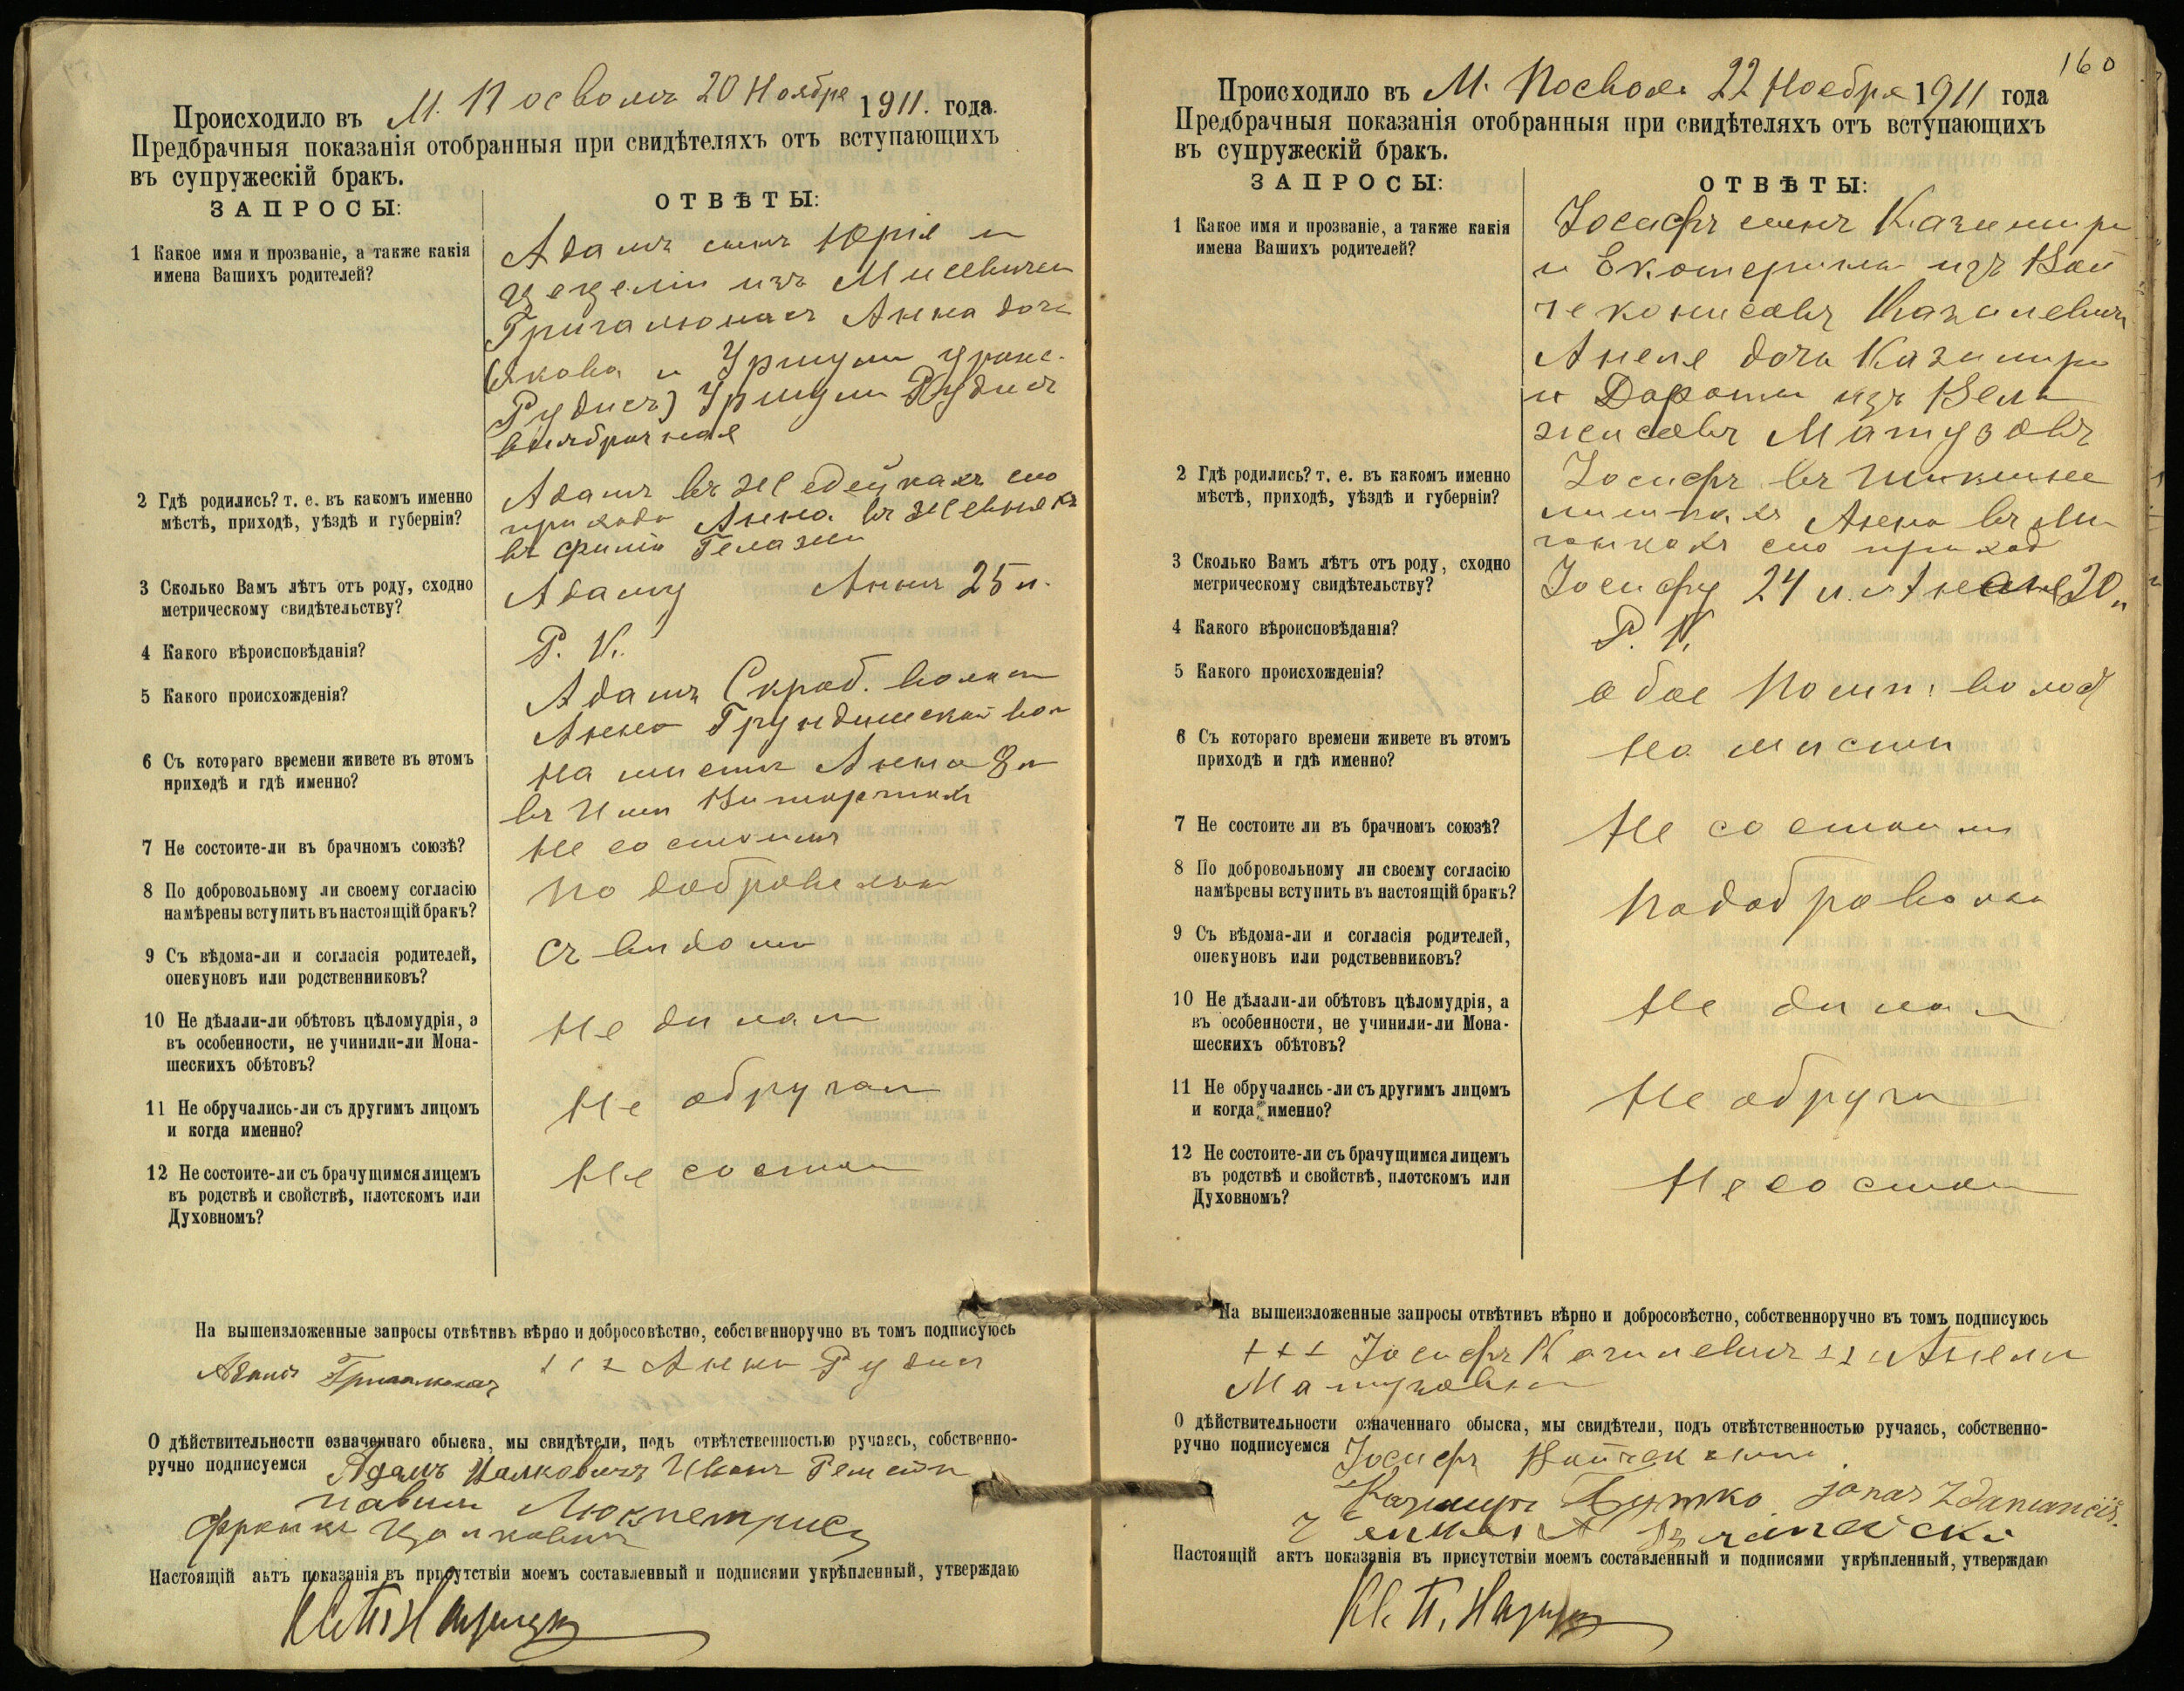 Происходило въ М. Посволь 20 Ноября 1911. года.
Предбрачныя показанія отобранныя при свидѣтеляхъ отъ вступающихъ
въ супружескій бракъ.
ЗАПРОСЫ:
ОТВѢТЫ:
1 Какое имя и прозваніе, а также какія
имена Вашихъ родителей?
Адамъ сынъ Юрія и
Цецеліи изъ Мисевичей
Григалюнасъ Анна дочь
(Якова и Уршули
Рудисъ) Уршули Рудисъ
внѣбрачная
2 Гдѣ родились? т. е. въ какомъ именно
мѣстѣ, приходѣ, уѣздѣ и губерніи?
Адамъ въ Жедейкахъ сно
прихода Анна въ
въ филіи Гелажи
3 Сколько Вамъ лѣтъ отъ роду, сходно
метрическому свидѣтельству?
Адаму Аннѣ 25 л.
4 Какого вѣроисповѣданія?
Р. К.
5 Какого происхожденія?
Адамъ Скроб. волост
Анна Грундишской вол
6 Съ котораго времени живете въ этомъ
приходѣ и гдѣ именно?
На мисти Анна 8 л
въ Им
7 Не состоите-ли въ брачномъ союзѣ?
Не состоимъ
8 По добровольному ли своему согласію
намѣрены вступить въ настоящій бракъ?
По доброволы
9 Съ вѣдома-ли и согласія родителей,
опекуновъ или родственниковъ?
Съ видома
10 Не дѣлали-ли обѣтовъ цѣломудрія, а
въ особенности, не учинили-ли Мона-
шескихъ обѣтовъ?
Не дилали
11 Не обручались-ли съ другимъ лицомъ
и когда именно?
Не обручали
12 Не состоите-ли съ брачущимся лицемъ
въ родствѣ и свойствѣ, плотскомъ или
Духовномъ?
Не состои
На вышеизложенные запросы отвѣтивъ вѣрно и добросовѣстно, собственноручно въ томъ подписуюсь
Адамъ Григалюнасъ +++ Анна Рудис
О дѣйствительности означеннаго обыска, мы свидѣтели, подъ отвѣтственностью ручаясь, собственно-
ручно подписуемся Адамъ Цалковичъ Иванъ
Павилъ Люкпетрисъ
Франц Цалкович
Настоящій актъ показанія въ присутствіи моемъ составленный и подписями укрѣпленный, утверждаю
Кс. П.
160
Происходило въ М. Посволь 22 Ноября 1911 года
Предбрачныя показанія отобранныя при свидѣтеляхъ отъ вступающихъ
въ супружескій бракъ.
ЗАПРОСЫ:
ОТВѢТЫ:
1 Какое имя и прозваніе, а также какія
имена Вашихъ родителей?
Іосифъ сынъ Казимира
и Екатерины изъ Вой
чеконисовъ Казилевичъ
Анеля дочь Казимира
и Дароты изъ Вель
жисовъ Матузовъ
2 Гдѣ родились? т. е. въ какомъ именно
мѣстѣ, приходѣ, уѣздѣ и губерніи?
Іосифъ въ
Анеля въ Ми
сно приход
3 Сколько Вамъ лѣтъ отъ роду, сходно
метрическому свидѣтельству?
Іосифу 24 л. Анеле 20 л
4 Какого вѣроисповѣданія?
Р. К.
5 Какого происхожденія?
обое волост
6 Съ котораго времени живете въ этомъ
приходѣ и гдѣ именно?
На мисти
7 Не состоите ли въ брачномъ союзѣ?
Не состоим
8 По добровольному ли своему согласію
намѣрены вступить въ настоящій бракъ?
По доброволы
9 Съ вѣдома-ли и согласія родителей,
опекуновъ или родственниковъ?
10 Не дѣлали-ли обѣтовъ цѣломудрія, а
въ особенности, не учинили-ли Мона-
шескихъ обѣтовъ?
Не дилал
11 Не обручались-ли съ другимъ лицомъ
и когда именно?
Не обруча
12 Не состоите-ли съ брачущимся лицемъ
въ родствѣ и свойствѣ, плотскомъ или
Духовномъ?
Не состои
На вышеизложенные запросы отвѣтивъ вѣрно и добросовѣстно, собственноручно въ томъ подписуюсь
+++ Іосифъ Казилевичъ +++ Анели
Матузовна
О дѣйствительности означеннаго обыска, мы свидѣтели, подъ отвѣтственностью ручаясь, собственно-
ручно подписуемся Іосифъ
Казимиръ Бутко Jonas
Настоящій актъ показанія въ присутствіи моемъ составленный и подписями укрѣпленный, утверждаю
Кс. П.